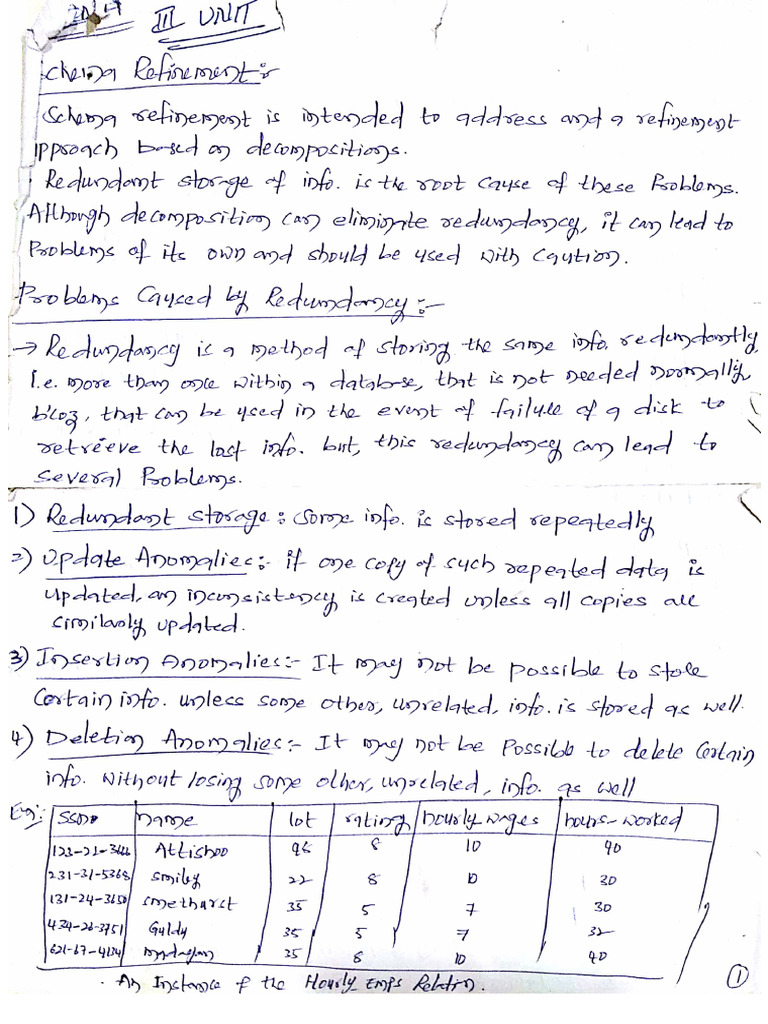 III UNIT
Schema Refinement:-
Schema refinement is intended to address and a refinement
approach based on decompositions.
Redundant storage of info. is the root cause of these Problems.
Although decomposition can eliminate redundancy, it can lead to
Problems of its own and should be used with caution.
Problems Caused by Redundancy:-
→ Redundancy is a method of storing the same info. redundantly
i.e. more than once within a database, that is not needed normally
b'coz, that can be used in the event of failure of a disk to
retrieve the lost info. but, this redundancy can lead to
several Problems.
1) Redundant Storage: some info. is stored repeatedly
2) Update Anomalies:- if one copy of such repeated data is
updated, an inconsistency is created unless all copies are
similarly updated.
3) Insertion Anomalies:- It may not be possible to store
Certain info. unless some other, unrelated, info. is stored as well.
4) Deletion Anomalies:- It may not be Possible to delete Certain
info. without losing some other, unrelated, info. as well
Eg:- SSNo name lot rating hourly wages hours-worked
123-21-3666 Attishoo 48 8 10 40
231-31-5368 Smiley 22 8 10 30
131-24-3650 Smethurst 35 5 7 30
434-26-3751 Guldy 35 5 7 32
621-67-4134 Madayan 35 8 10 40
. An Instance of the Hourly_Emps Relation.
1